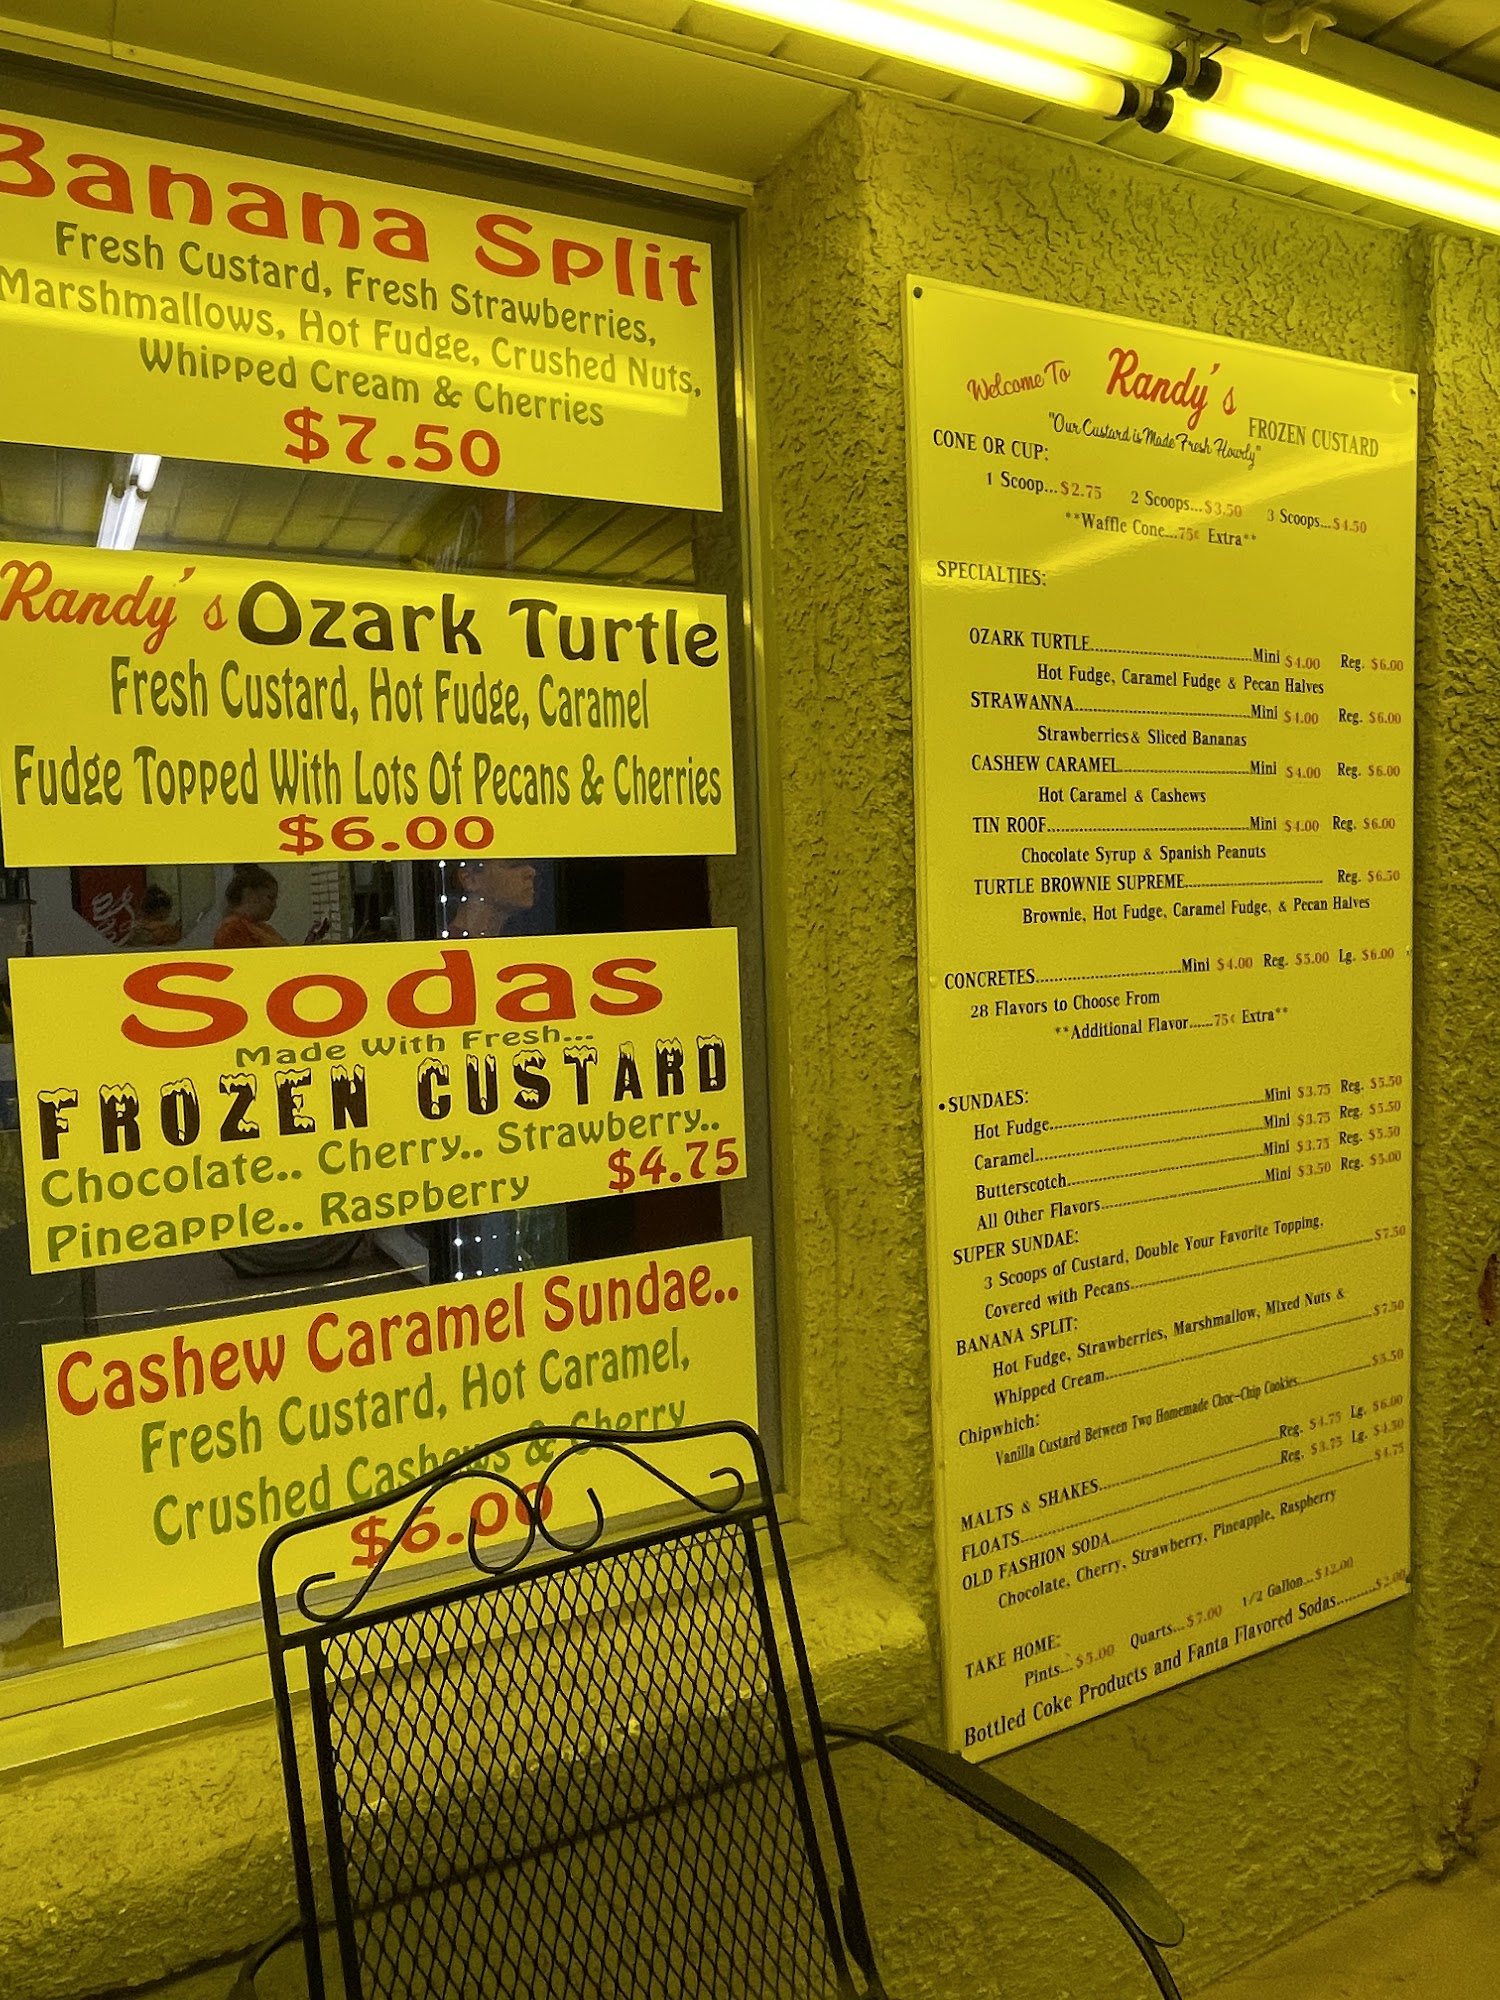 Banana Split
Fresh Custard, Fresh Strawberries,
Marshmallows, Hot Fudge, Crushed Nuts,
Whipped Cream & Cherries
$7.50
Randy's Ozark Turtle
Fresh Custard, Hot Fudge, Caramel
Fudge Topped With Lots Of Pecans & Cherries
$6.00
Sodas
Made With Fresh...
FROZEN CUSTARD
Chocolate.. Cherry.. Strawberry..
Pineapple.. Raspberry $4.75
Cashew Caramel Sundae..
Fresh Custard, Hot Caramel,
Crushed Cashews & Cherry
$6.00
Welcome To Randy's FROZEN CUSTARD
"Our Custard is Made Fresh Hourly"
CONE OR CUP:
1 Scoop...$2.75 2 Scoops...$3.50 3 Scoops...$4.50
**Waffle Cone...75¢ Extra**
SPECIALTIES:
OZARK TURTLE........Mini $4.00 Reg. $6.00
Hot Fudge, Caramel Fudge & Pecan Halves
STRAWANNA........Mini $4.00 Reg. $6.00
Strawberries & Sliced Bananas
CASHEW CARAMEL........Mini $4.00 Reg. $6.00
Hot Caramel & Cashews
TIN ROOF........Mini $4.00 Reg. $6.00
Chocolate Syrup & Spanish Peanuts
TURTLE BROWNIE SUPREME........ Reg. $6.50
Brownie, Hot Fudge, Caramel Fudge, & Pecan Halves
CONCRETES........Mini $4.00 Reg. $5.00 Lg. $6.00
28 Flavors to Choose From
**Additional Flavor......75¢ Extra**
•SUNDAES:
Hot Fudge........Mini $3.75 Reg. $5.50
Caramel........Mini $3.75 Reg. $5.50
Butterscotch........Mini $3.75 Reg. $5.50
All Other Flavors........Mini $3.50 Reg. $5.00
SUPER SUNDAE:
3 Scoops of Custard, Double Your Favorite Topping,
Covered with Pecans........$7.50
BANANA SPLIT:
Hot Fudge, Strawberries, Marshmallow, Mixed Nuts &
Whipped Cream........$7.50
Chipwhich:
Vanilla Custard Between Two Homemade Choc-Chip Cookies........$3.50
MALTS & SHAKES........Reg. $4.75 Lg. $6.00
FLOATS........Reg. $3.75 Lg. $4.50
OLD FASHION SODA........$4.75
Chocolate, Cherry, Strawberry, Pineapple, Raspberry
TAKE HOME:
Pints...$5.00 Quarts...$7.00 1/2 Gallon...$12.00
Bottled Coke Products and Fanta Flavored Sodas........$2.00